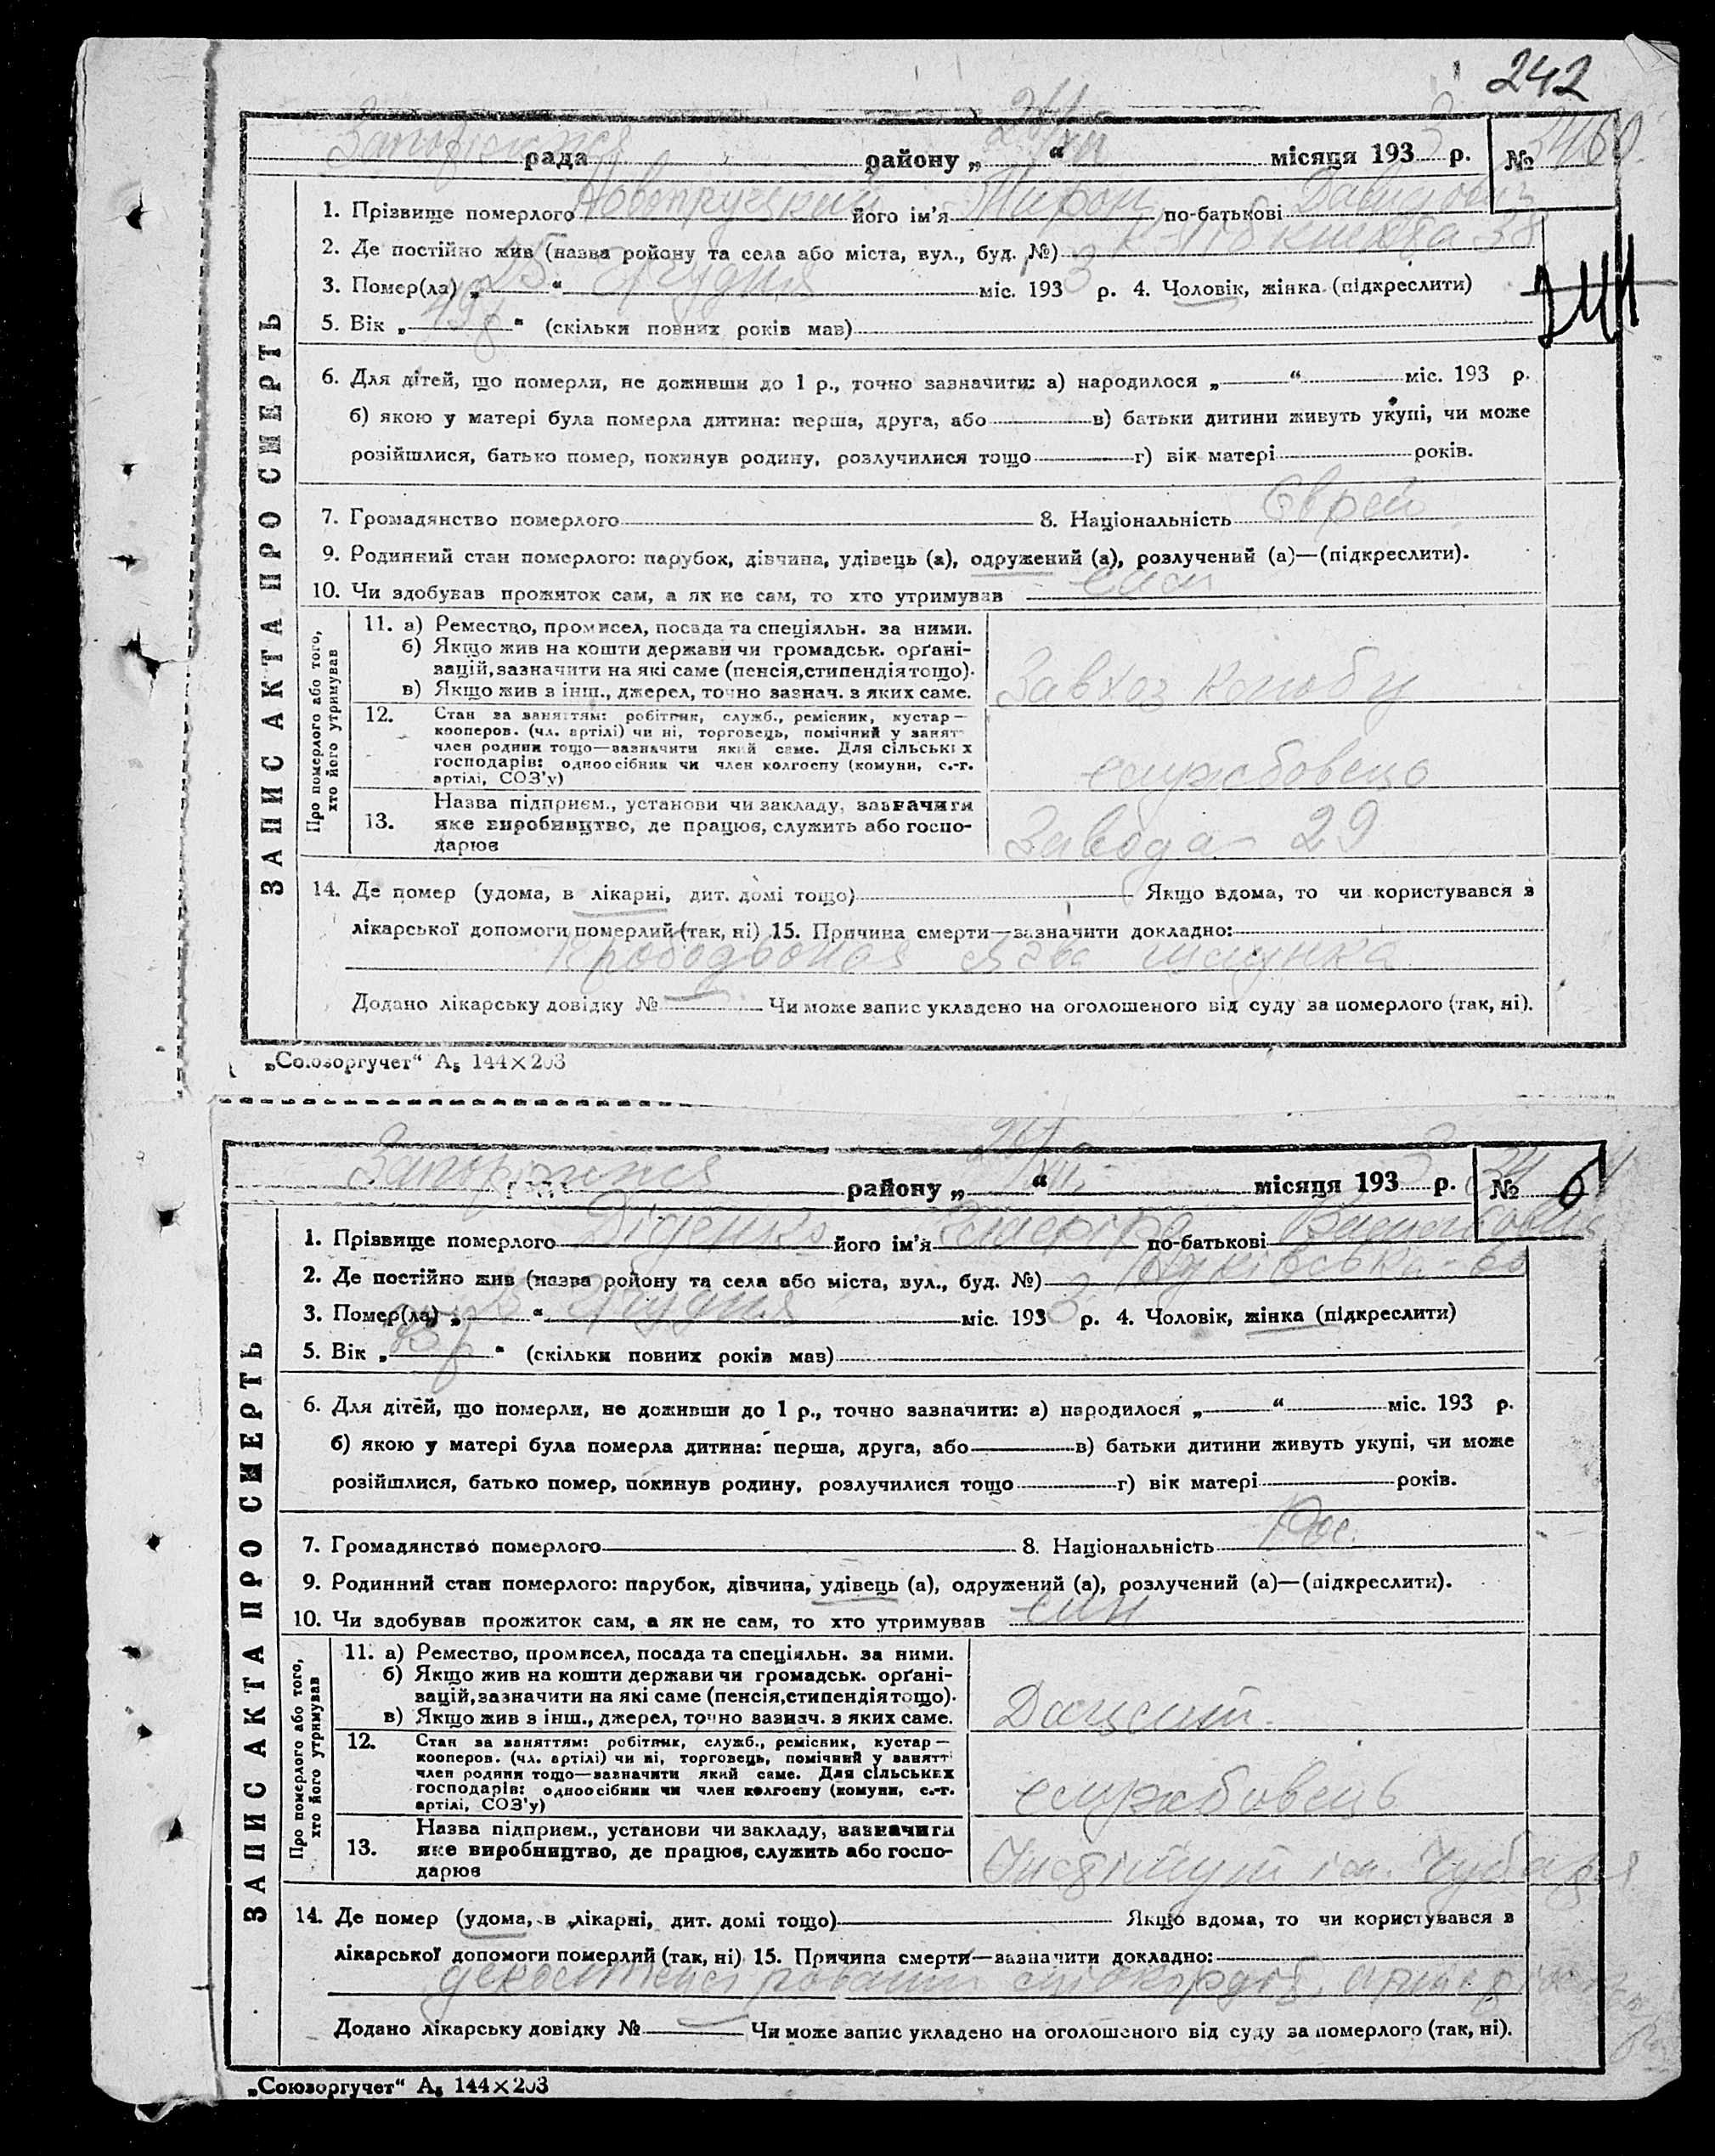 242
Запоріжжя рада района „ 26/XII “ місяця 1933 р. № 3460
1. Прізвище померлого його ім'я Мирон по-батькові Давидович
2. Де постійно жив (назва ройону та села або міста, вул., буд. №) 38
3. Помер(ла) „ 25 “ Грудня міс. 1933 р. 4. Чоловік, жінка (підкреслити)
5. Вік „ 49 р “ (скільки повних років мав)
6. Для дітей, що померли, не доживши до 1 р., точно зазначити: а) народилося „ “ міс. 193 р.
б) якою у матері була померла дитина: перша, друга, або в) батьки дитини живуть укупі, чи може
розійшлися, батько помер, покинув родину, розлучилися тощо г) вік матері років.
7. Громадянство померлого 8. Національність Єврей
9. Родинний стан померлого: парубок, дівчина, удівець (а), одружений (а), розлучений (а)—(підкреслити).
10. Чи здобував прожиток сам, а як не сам, то хто утримував сам
ЗАПИС АКТА ПРО СМЕРТЬ
Про померлого або того, хто його утримував
11. а) Ремество, промисел, посада та спеціяльн. за ними.
б) Якщо жив на кошти держави чи громадськ. орґані-
зацій, зазначити на які саме (пенсія, стипендія тощо).
в) Якщо жив з інш., джерел, точно зазнач. з яких саме. Завхоз
12. Стан за заняттям: робітник, служб., ремісник, кустар—
кооперов. (чл. артілі) чи ні, торговець, помічний у занят
член родини тощо—зазначити який саме. Для сільських
господарів: одноосібник чи член колгоспу (комуни, с.-г.
артілі, СОЗ'у) службовець
Назва підприєм., установи чи закладу, зазначити
13. яке виробництво, де працює, служить або госпо-
дарює Завода 29
14. Де помер (удома, в лікарні, дит. домі тощо) Якщо вдома, то чи користувався з
лікарської допомоги померлий (так, ні) 15. Причина смерти—зазначити докладно:
язва шлунка
Додано лікарську довідку № Чи може запис укладено на оголошеного від суду за померлого (так, ні).
„Союзоргучет“ А₅ 144×203
Запоріжжя району „ 26/XII “ місяця 1933 р. № 3461
1. Прізвище померлого Діденко його ім'я по-батькові
2. Де постійно жив (назва ройону та села або міста, вул., буд. №) 60
3. Помер(ла) „ 25 “ Грудня міс. 1933 р. 4. Чоловік, жінка (підкреслити)
5. Вік „ “ (скільки повних років мав)
6. Для дітей, що померли, не доживши до 1 р., точно зазначити: а) народилося „ “ міс. 193 р.
б) якою у матері була померла дитина: перша, друга, або в) батьки дитини живуть укупі, чи може
розійшлися, батько помер, покинув родину, розлучилися тощо г) вік матері років.
7. Громадянство померлого 8. Національність Рос.
9. Родинний стан померлого: парубок, дівчина, удівець (а), одружений (а), розлучений (а)—(підкреслити).
10. Чи здобував прожиток сам, а як не сам, то хто утримував син
ЗАПИС АКТА ПРО СМЕРТЬ
Про померлого або того, хто його утримував
11. а) Ремество, промисел, посада та спеціяльн. за ними.
б) Якщо жив на кошти держави чи громадськ. орґані-
зацій, зазначити на які саме (пенсія, стипендія тощо).
в) Якщо жив з інш., джерел, точно зазнач. з яких саме. Доцент.
12. Стан за заняттям: робітник, служб., ремісник, кустар—
кооперов. (чл. артілі) чи ні, торговець, помічний у занятті
член родини тощо—зазначити який саме. Для сільських
господарів: одноосібник чи член колгоспу (комуни, с.-г.
артілі, СОЗ'у) службовець
Назва підприєм., установи чи закладу, зазначити
13. яке виробництво, де працює, служить або госпо-
дарює Інститут ім. Чубаря
14. Де помер (удома, в лікарні, дит. домі тощо) Якщо вдома, то чи користувався з
лікарської допомоги померлий (так, ні) 15. Причина смерти—зазначити докладно:
Додано лікарську довідку № Чи може запис укладено на оголошеного від суду за померлого (так, ні).
„Союзоргучет“ А₅ 144×203